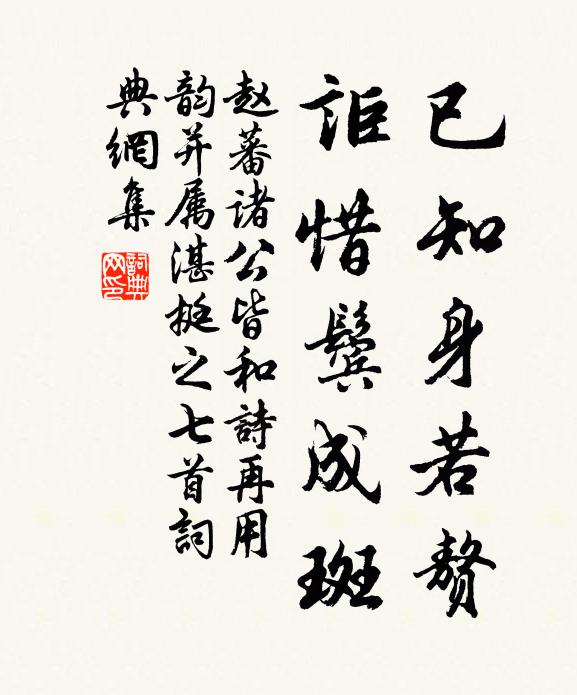 已知身若赘
詎惜鬓成斑
赵蕃诸公皆和詩再用
韵并属湛挺之七首詞
典網集
詞典网印